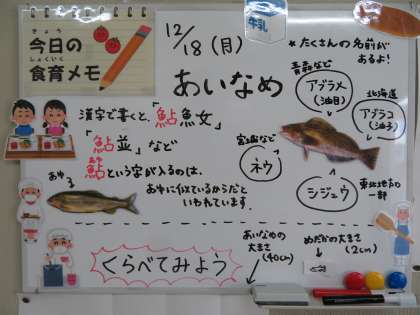 きょう
今日の
しょくいく
食育メモ
12/18(月)
牛乳
あいなめ
★たくさんの名前が
あるよ!
青森など
アブラメ
(油目)
北海道
アブラコ
(油子)
漢字で書くと、「鮎魚女」
「鮎並」など
鮎という字が入るのは、
あゆに似ているからだと
いわれています。
あゆ
宮城など
ネウ
シジュウ
東北地方の
一部
くらべてみよう
あいなめの
大きさ
(40cm)
めだかの大きさ
(2cm)